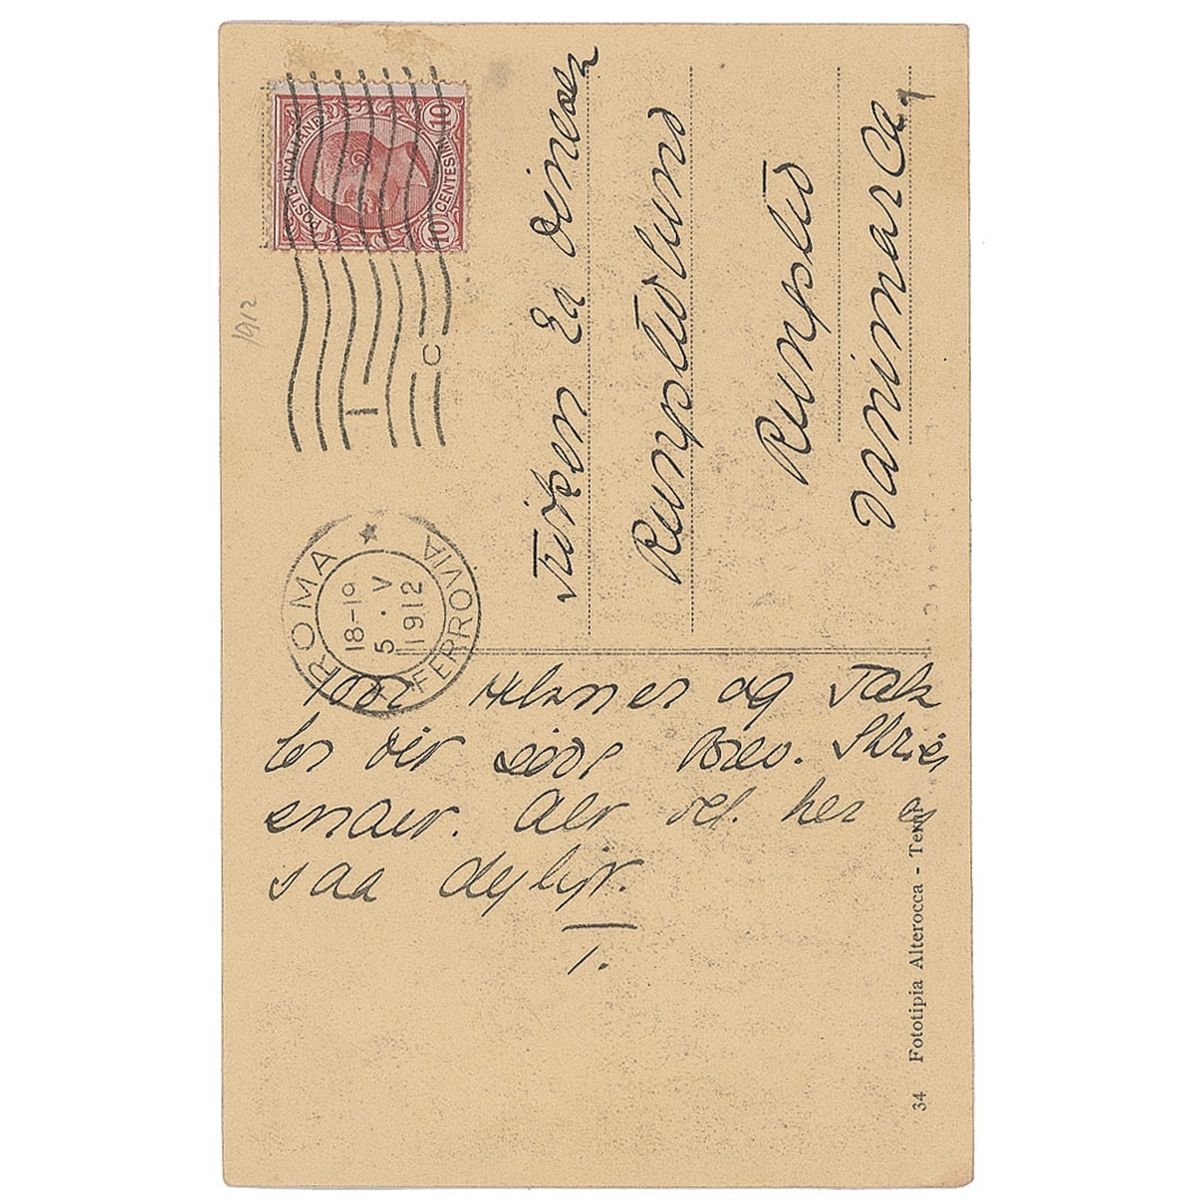 POSTE ITALIANE
10 CENTESIMI 10
1912
ROMA
18-19
5 · V
1912
FERROVIA
Frøken Ea Dinesen
Rungstedlund
Rungsted
Danimarca
1000 Hilsner og Tak
for dit søde Brev. Skriv
snart. Alt det her er
saa dejligt.
T.
34 Fototipia Alterocca - Terni